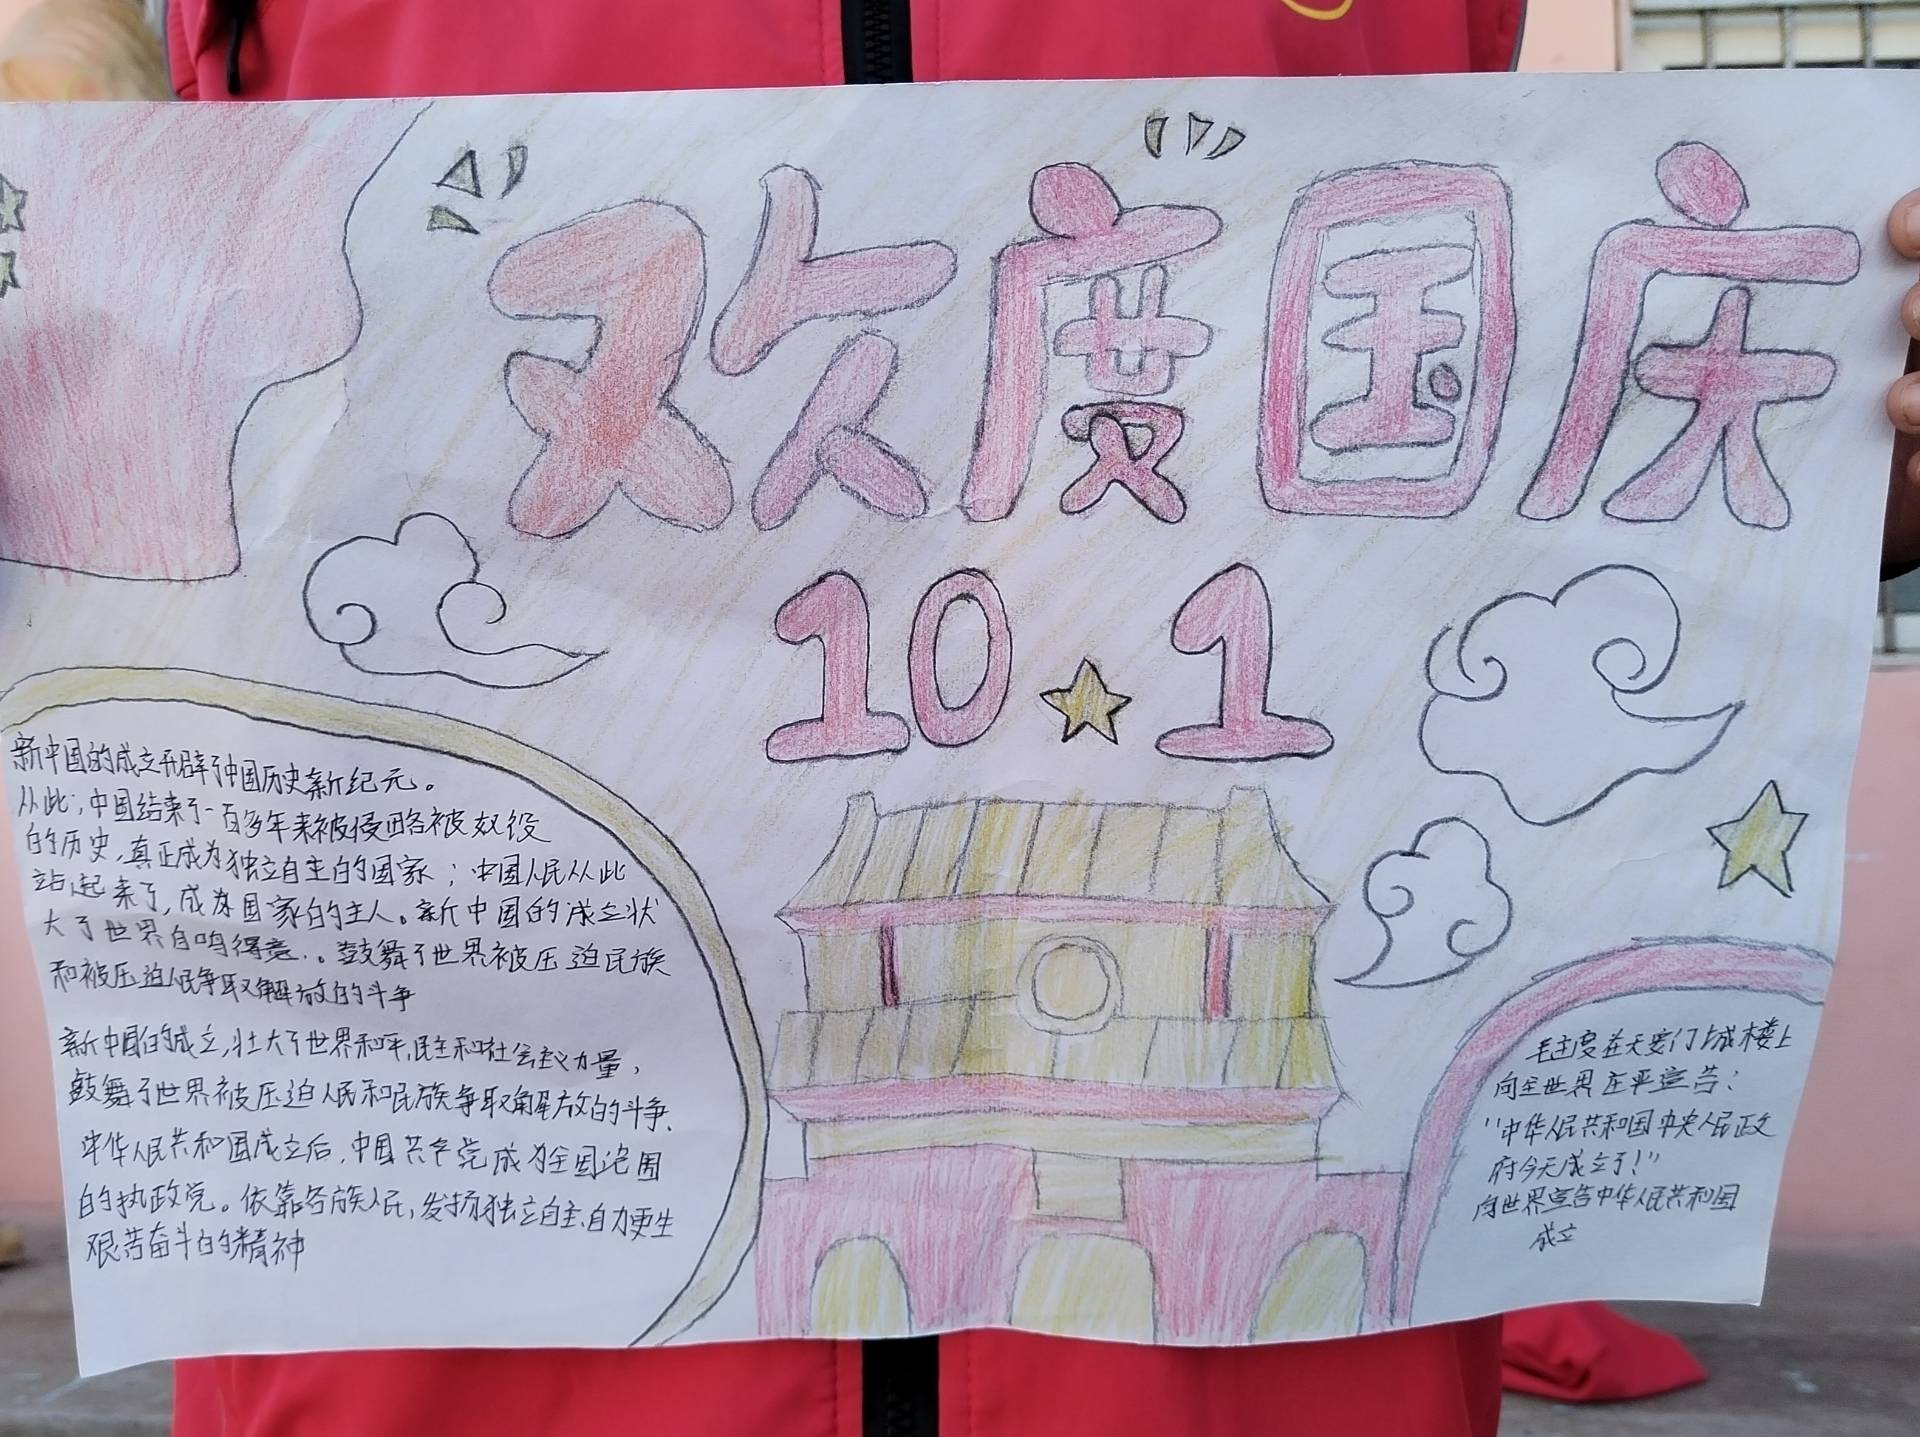 欢度国庆
10 1
新中国的成立开辟了中国历史新纪元。
从此,中国结束了一百多年来被侵略被奴役
的历史,真正成为独立自主的国家;中国人民从此
站起来了,成为国家的主人。新中国的成立壮
大了世界自鸣得意.。鼓舞了世界被压迫民族
和被压迫人民争取解放的斗争
新中国的成立,壮大了世界和平,民主和社会主义力量,
鼓舞了世界被压迫人民和民族争取解放的斗争.
中华人民共和国成立后,中国共产党成为全国范围
的执政党。依靠各族人民,发扬独立自主、自力更生
艰苦奋斗的精神
毛主席在天安门城楼上
向全世界庄严宣告:
"中华人民共和国中央人民政
府今天成立了!"
向世界宣告中华人民共和国
成立